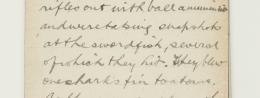 rifles out with ball ammunition
and were taking snapshots
at the swordfish, several
of which they hit. They blew
one sharks fin to atoms.